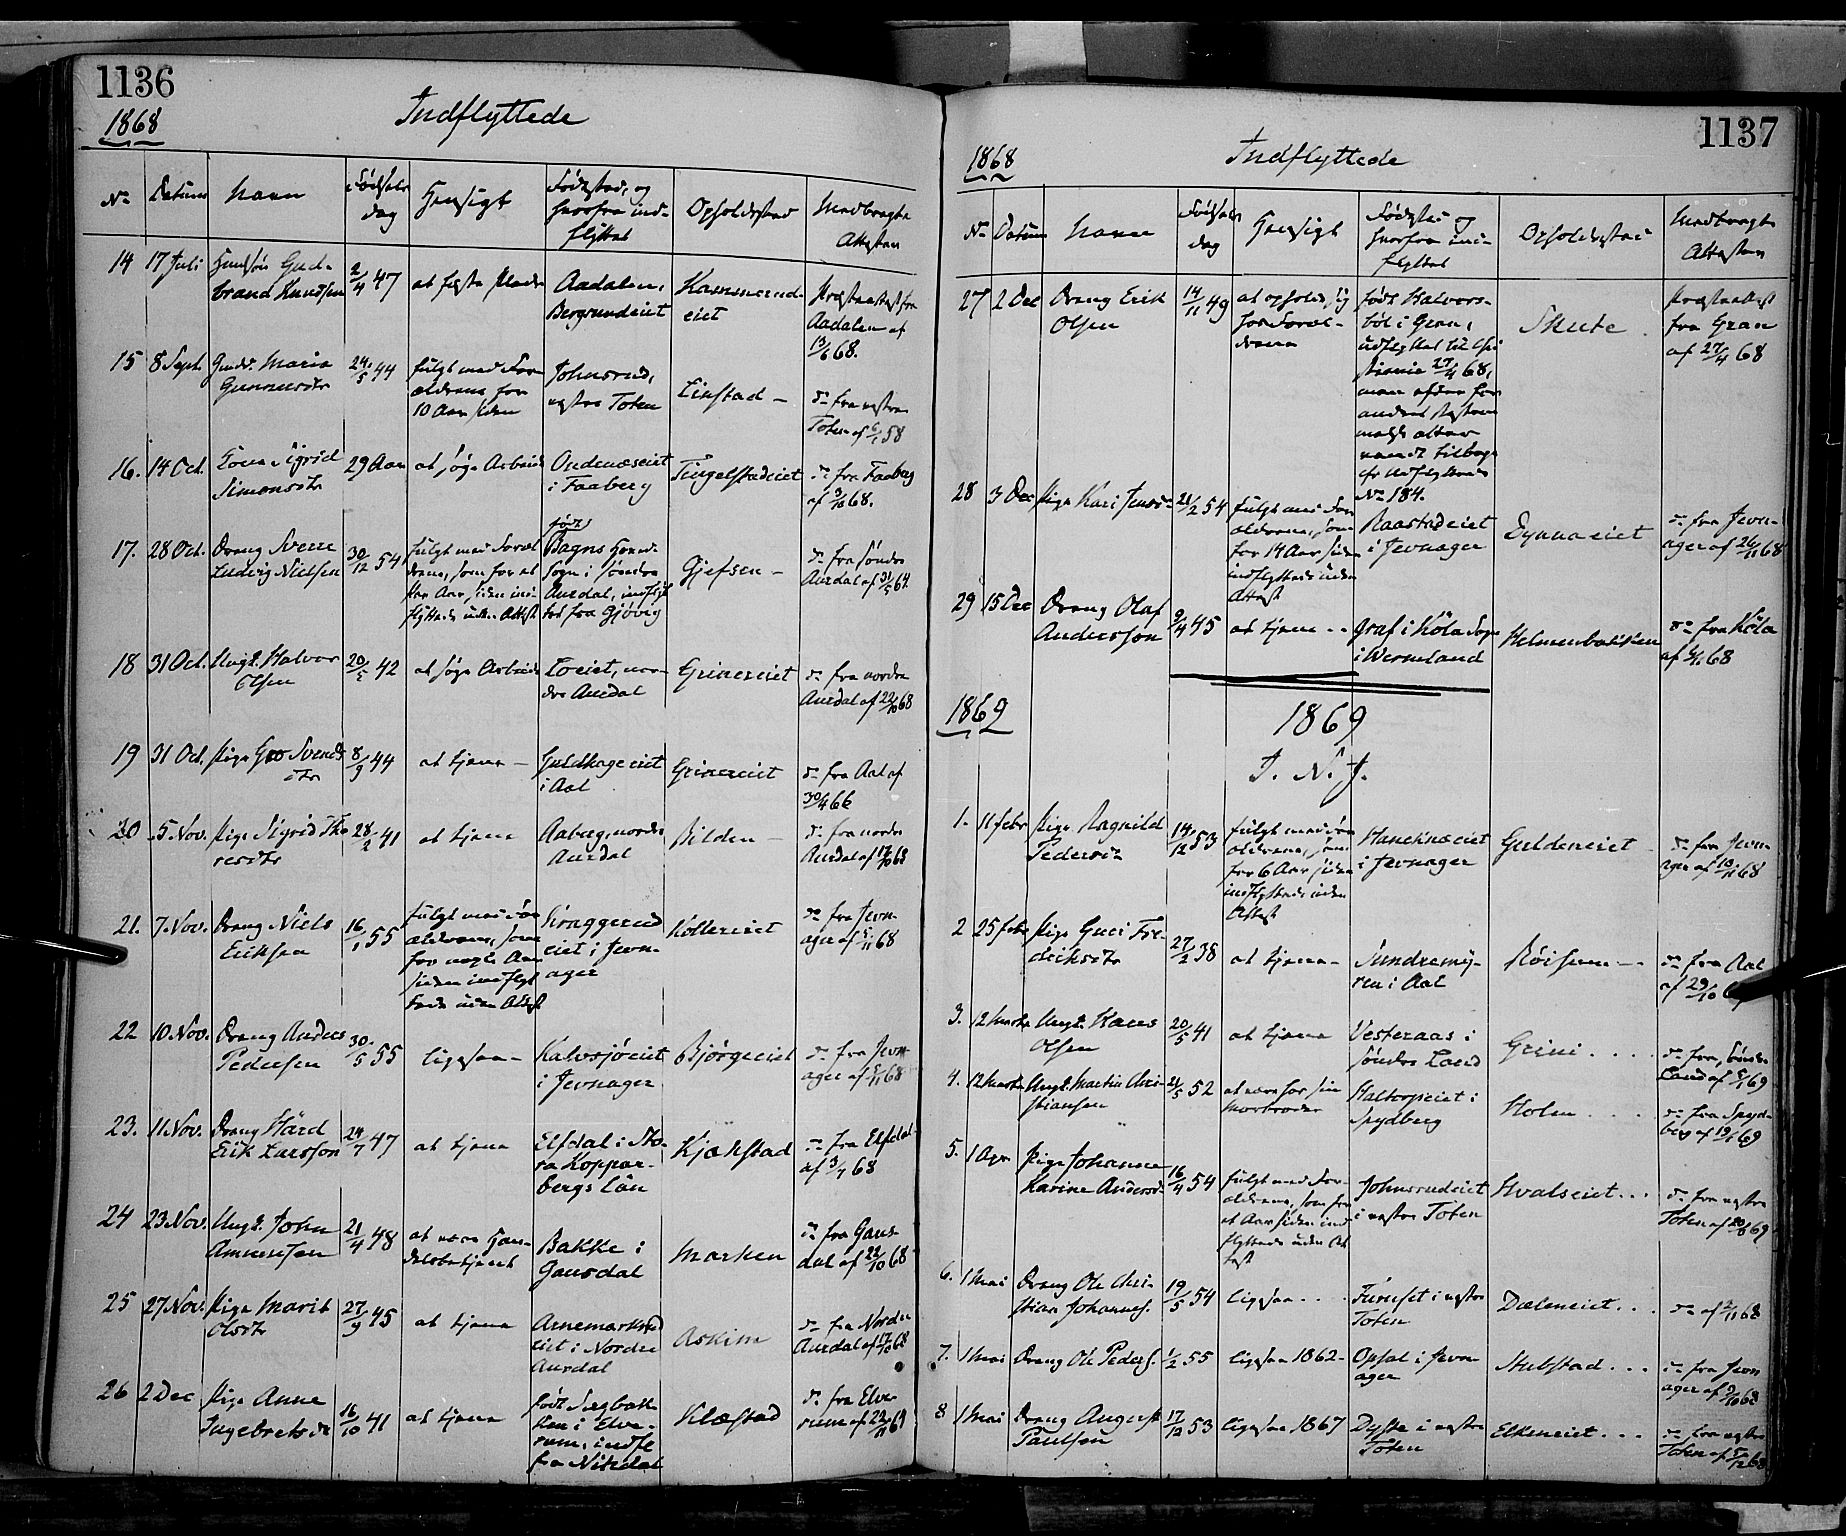 1136
1868
Indflyttede
No Datum Navn Fødsels dag Hensigt Fødested, og hvorfra ind- flyttet Opholdssted Medbragte Attester
14 17 Juli Gud- brand Knudsen 2/4 47 at fæste Plads Aadalen, Bergsundeiet Præsteattest fra Aadalen af 13/6 68.
15 8 Sept. Maria Gunnersdtr 24/5 44 fulgt med For- ældrene for 10 Aar siden Johnsrud, vestre Toten Einstad — do fra vestre Toten af 58
16. 14 Oct. Kone Sigrid Simensdtr 29 Aar at søge Arbeide i Faaberg Tingelstadeiet do fra Faaberg af 3/10 68.
17. 28 Oct. Dreng Ludvig Nielsen 30/12 54 fulgt med Foræl- drene, som for et Par Aar siden ind- flyttede uden Attest født Bagns Sogn i søndre Aurdal, indflyt- tet fra Gjøvig Gjefsen — do fra søndre Aurdal af 31/5 64
18 31 Oct. Ungk. Halvor Olsen 20/5 42 at søge Arbeide nor- dre Aurdal Grinereiet do fra nordre Aurdal af 22/10 68
19 31 Oct. Pige Gro Svends- dtr 8/9 44 at tjene — Guldhageeiet i Aal Grinereiet do fra Aal af 30/4 66
20 5. Nov. Pige Sigrid Tho- resdtr 28/2 41 at tjene Aaberg, nordre Aurdal Bilden — do fra nordre Aurdal af 17/10 68
21. 7. Nov. Dreng Niels Eriksen 16/1 55 fulgt med For- ældrene, som for nogle Aar siden indflyt- tede uden Attest Kraggerud- eiet i Jevn- ager Kollereiet do fra Jevn- ager af 5/11 68
22 10. Nov. Dreng Anders Pedersen 30/5 55 ligesaa — Kalvsjøeiet i Jevnager Bjørgeeiet do fra Jevn- ager af 5/11 68
23. 11. Nov. Dreng Hård Erik Larsson 24/7 47 at tjene Elfdal i Sto- ra Koppar- bergs Län Kjækstad do fra Elfdal af 3/7 68
24 23. Nov. Ungk. John Amundsen 21/4 48 at være Han- delsbetjent Bakke i Gausdal Marken do fra Gaus- dal af 22/10 68
25 27. Nov. Pige Marit Olsdtr 27/9 45 at tjene Arnemarks- eiet i Nordre Aurdal Askim do fra Nordre Aurdal af 17/10 68
26 2 Dec Pige Anne Ingebretsdtr 16/10 41 at tjene født i Elve- rum, indfl. fra Nitedal Klæstad do fra Elve- rum af 68
1137
1868
Indflyttede
No Datum Navn Fødsels dag Hensigt Fødested og hvorfra ind- flyttet Opholdssted Medbragte Attester
27 2 Dec Dreng Erik Olsen 14/11 49 at opholde sig hos Foræl- drene født Halvors- böl i Gran, udflyttet til Chri- stiania 27/4 68, No 184. Skute Præsteattest fra Gran af 27/4 68
28 3 Dec Pige Kari Jensdtr 21/2 54 fulgt med For- ældrene, som for 14 Aar siden indflyttede uden Attest Raastadeiet i Jevnager Dynnaeiet do fra Jevn- ager af 26/11 68
29 15 Dec Dreng Olaf Andersson 9/4 45 at tjene - - Graf i Köla Sogn i Wermland do fra Köla af 68
1869
1869
I. N. J.
1. 11 febr Pige Ragnild Pedersdtr 14/12 53 fulgt med For- ældrene, som for 6 Aar siden indflyttede uden Attest i Jevnager Guldeneiet do fra Jevn- ager af 68
2 25 febr Pige Guri Fre- driksdtr 27/2 38 at tjene — Sundremy- ren i Aal Røisum — do fra Aal af 29/10
3. 12 Marts Ungk. Hans Olsen 20/5 41 at tjene Vesteraas i søndre Land Grini . . . . do fra søndre Land af 69
4. 12 Marts Ungk. Martin Chri- stiansen 21/5 52 at være hos sin Morbroder i Spydberg Holen . . . . do fra Spyd- berg af 69
5. 1 Apr Pige Johanne Karine Andersd. 16/4 54 fulgt med For- ældrene, som for et Aar siden ind- flyttede uden At- test Johnsrudeiet i vestre Toten Hvalseiet . . . do fra vestre Toten af 69
6. 1 Mai Dreng Ole Chri- stian Johannes. 19/5 54 ligesaa . . . . Furuset i vestre Toten Dæleneiet . . . do af 68
7. 1 Mai Dreng Ole Peders. 1/2 55 ligesaa 1862 - Opsal i Jevn- ager Stubstad . . . do fra Jevn- ager af 68
8 1 Mai Dreng August Paulsen 17/12 53 ligesaa 1867 Dyste i vestre Toten Elkeneiet . . . do fra vestre Toten af 5/12 68